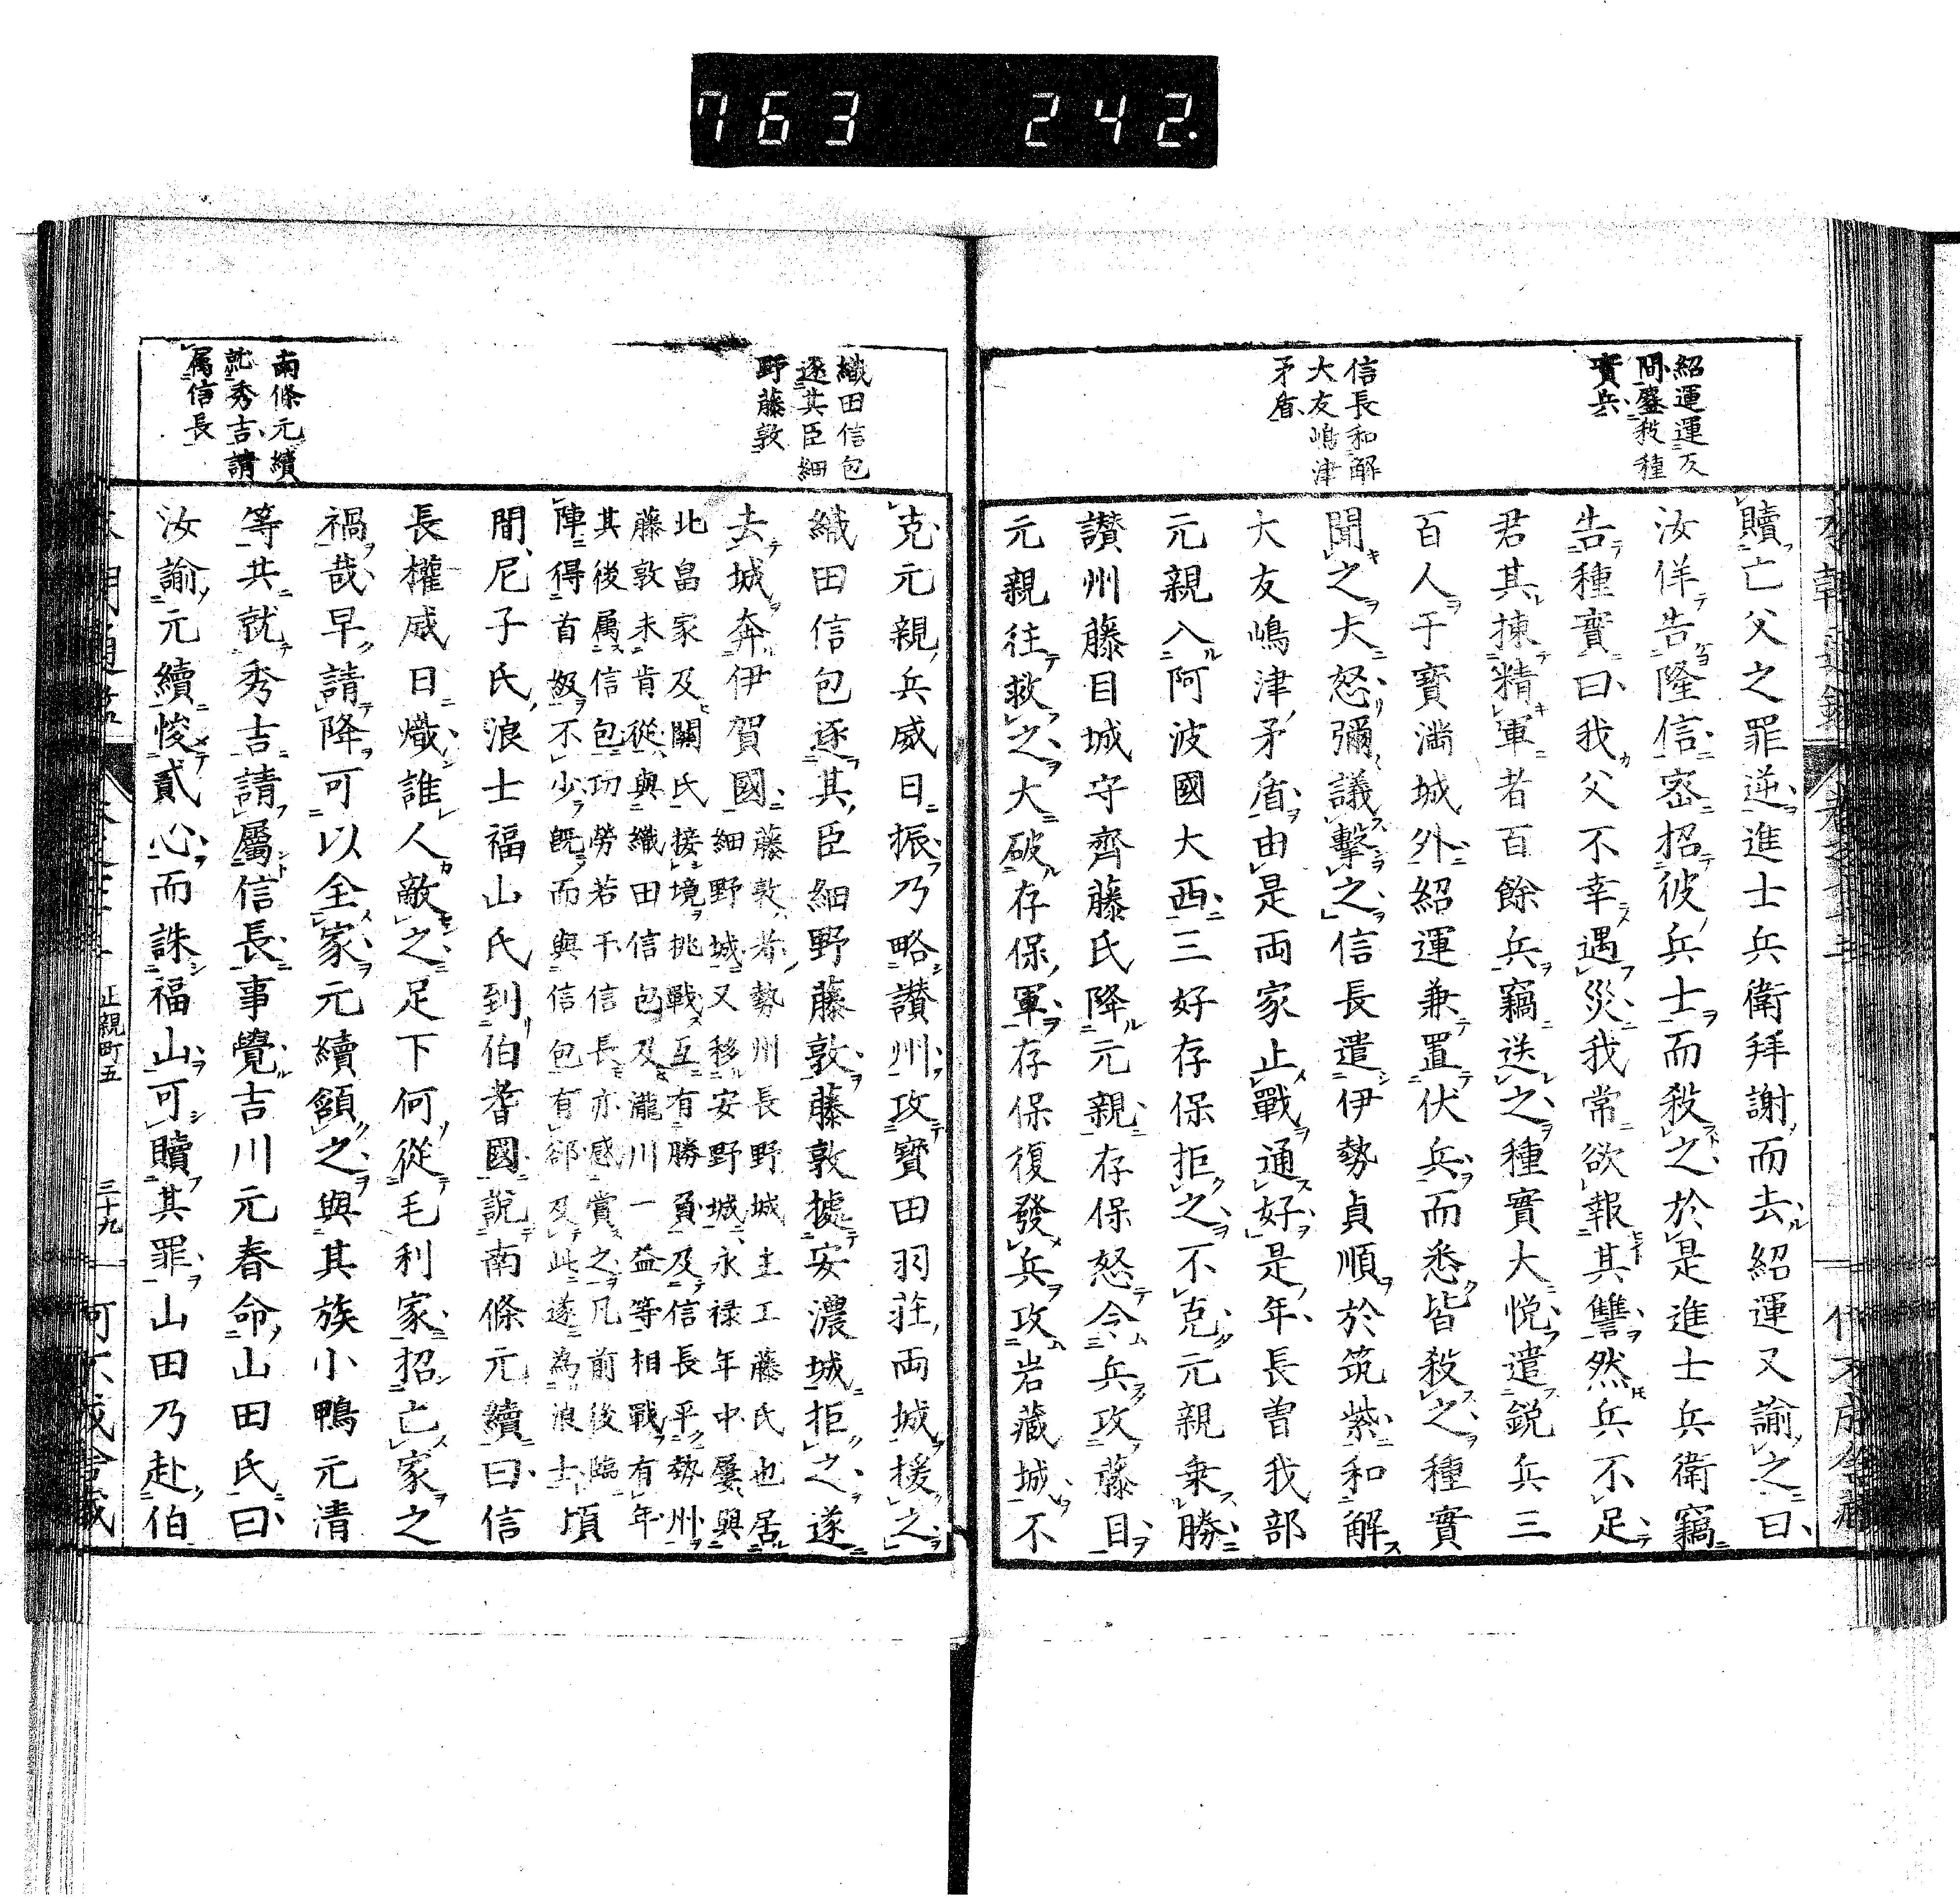 763 242.
紹運運反
間盡殺種
實兵
信長和解
大友嶋津
矛盾
贖亡父之罪逆進士兵衛拜謝而去紹運又諭之曰
汝佯告隆信密招彼兵士而殺之於是進士兵衛竊
告種實曰我父不幸遇災我常欲報其讐然兵不足
君其揀精軍者百餘兵竊送之種實大悅遣銳兵三
百人于寶満城外紹運兼置伏兵而悉皆殺之種實
聞之大怒彌議擊之信長遣伊勢貞順於筑紫和解
大友嶋津矛盾由是両家止戰通好是年長曽我部
元親入阿波國大西三好存保拒之不克元親乗勝
讃州藤目城守齊藤氏降元親存保怒令兵攻藤目
元親往救之大破存保軍存保復發兵攻岩藏城不
織田信包
逐其臣細
野藤敦
南條元續
就秀吉請
属信長
克元親兵威日振乃略讃州攻寶田羽荘両城援之
織田信包逐其臣細野藤敦藤敦據安濃城拒之遂
去城奔伊賀國
藤敦者勢州長野城主工藤氏也居
細野城又移安野城永禄年中屢與
北畠家及關氏接境挑戰互有勝負及信長平勢州
藤敦未肯從與織田信包及瀧川一益等相戰有年
其後属信包功勞若干信長亦感賞之凡前後臨
陣得首級不少既而與信包有郤及此遂為浪士
頃
間尼子氏浪士福山氏到伯耆國說南條元續曰信
長權威日熾誰人敵之足下何從毛利家招亡家之
禍哉早請降可以全家元續領之與其族小鴨元清
等共就秀吉請屬信長事覺吉川元春命山田氏曰
汝諭元續悛貳心而誅福山可贖其罪山田乃赴伯
正親町五
三十九